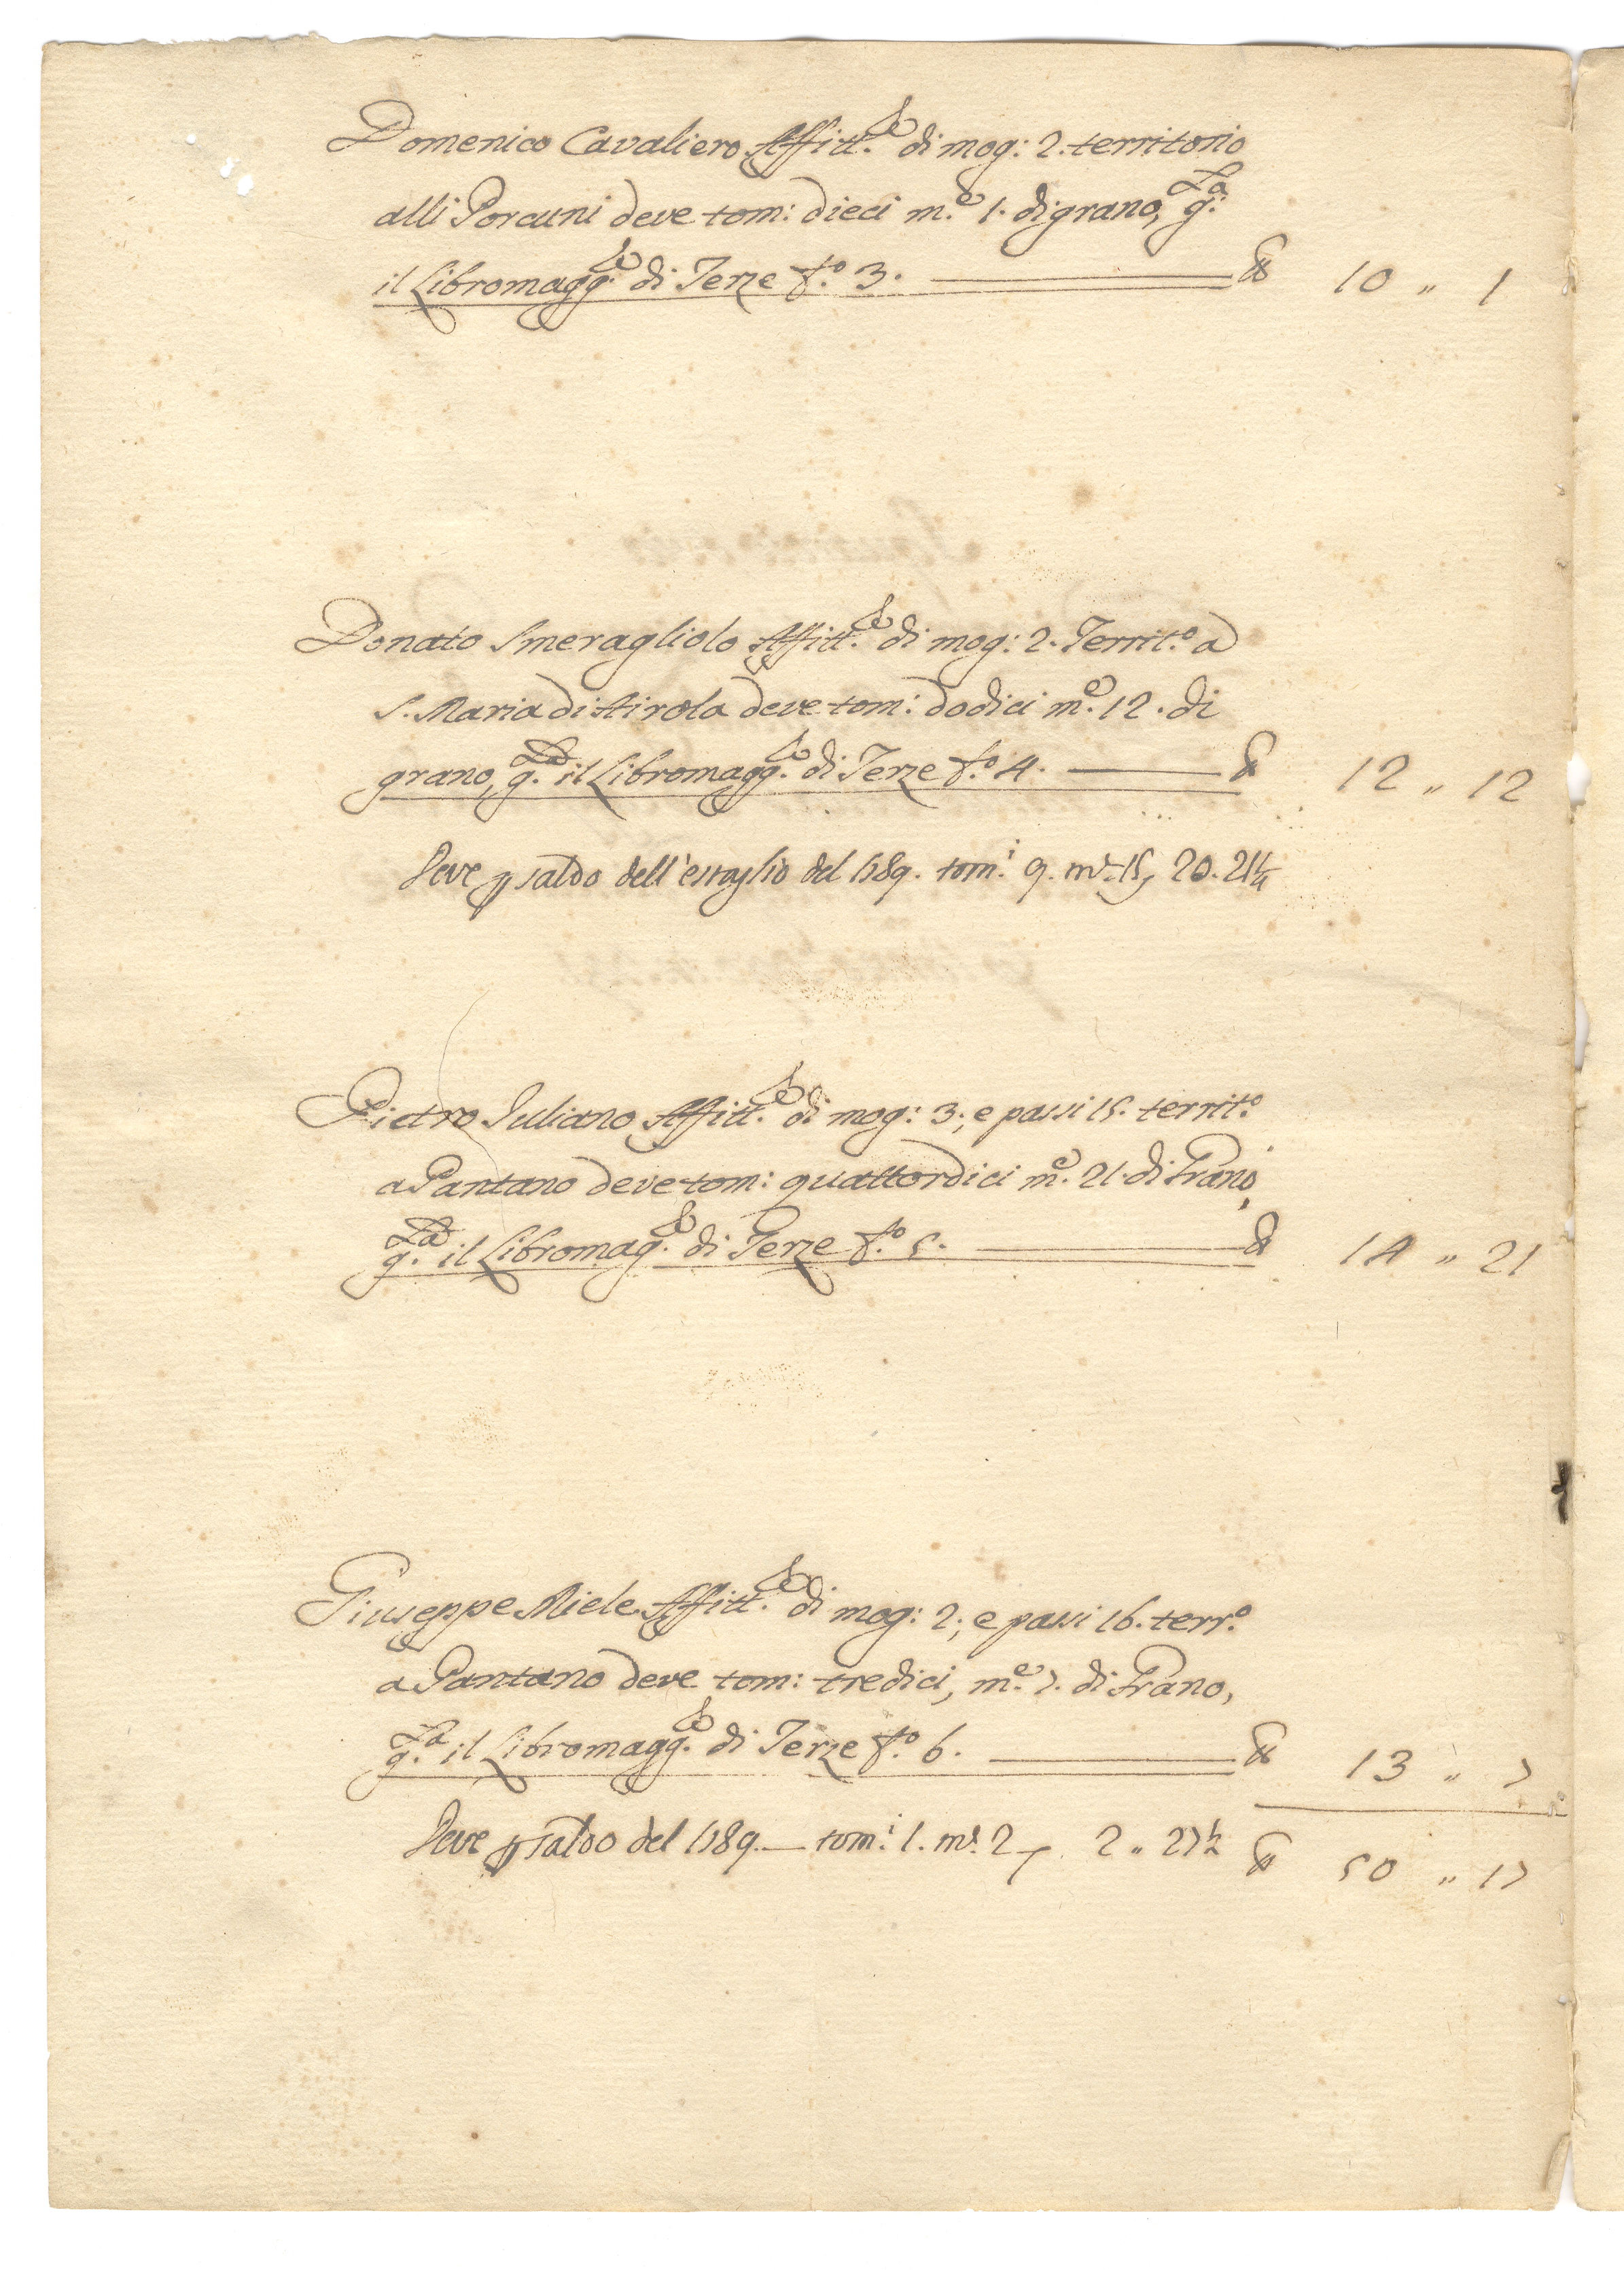 Domenico Cavaliero Affitt.re di mog: 2. territorio
alli Porcuni deve tom: dieci m.e 1. di grano, g.ta
il Libromagg.re di Terze f.o 3. 10 " 1
Donato Smeragliolo Affitt.re di mog: 2. Territ.o a
S. Maria di Airola deve tom: dodici m.e 12. di
grano, g.ta il Libromagg.re di Terze f.o 4. 12 " 12
Deve p saldo dell'estaglio del 1789. tom.i 9. m.e 15, 20. 21 1/4
Pietro Juliano Affitt.re di mog: 3; e passi 15. territ.o
a Pantano deve tom: quattordici m.e 21. di Grano,
g.ta il Libromag.re di Terze f.o 5. 14 " 21
Giuseppe Miele Affitt.re di mog: 2; e passi 16. terr.o
a Pantano deve tom: tredici, m.e 7. di Grano,
g.ta il Libromagg.re di Terze f.o 6. 13 " 7
Deve p saldo del 1789. tom.i 1. m.e 2 2 " 27 1/2 50 " 17